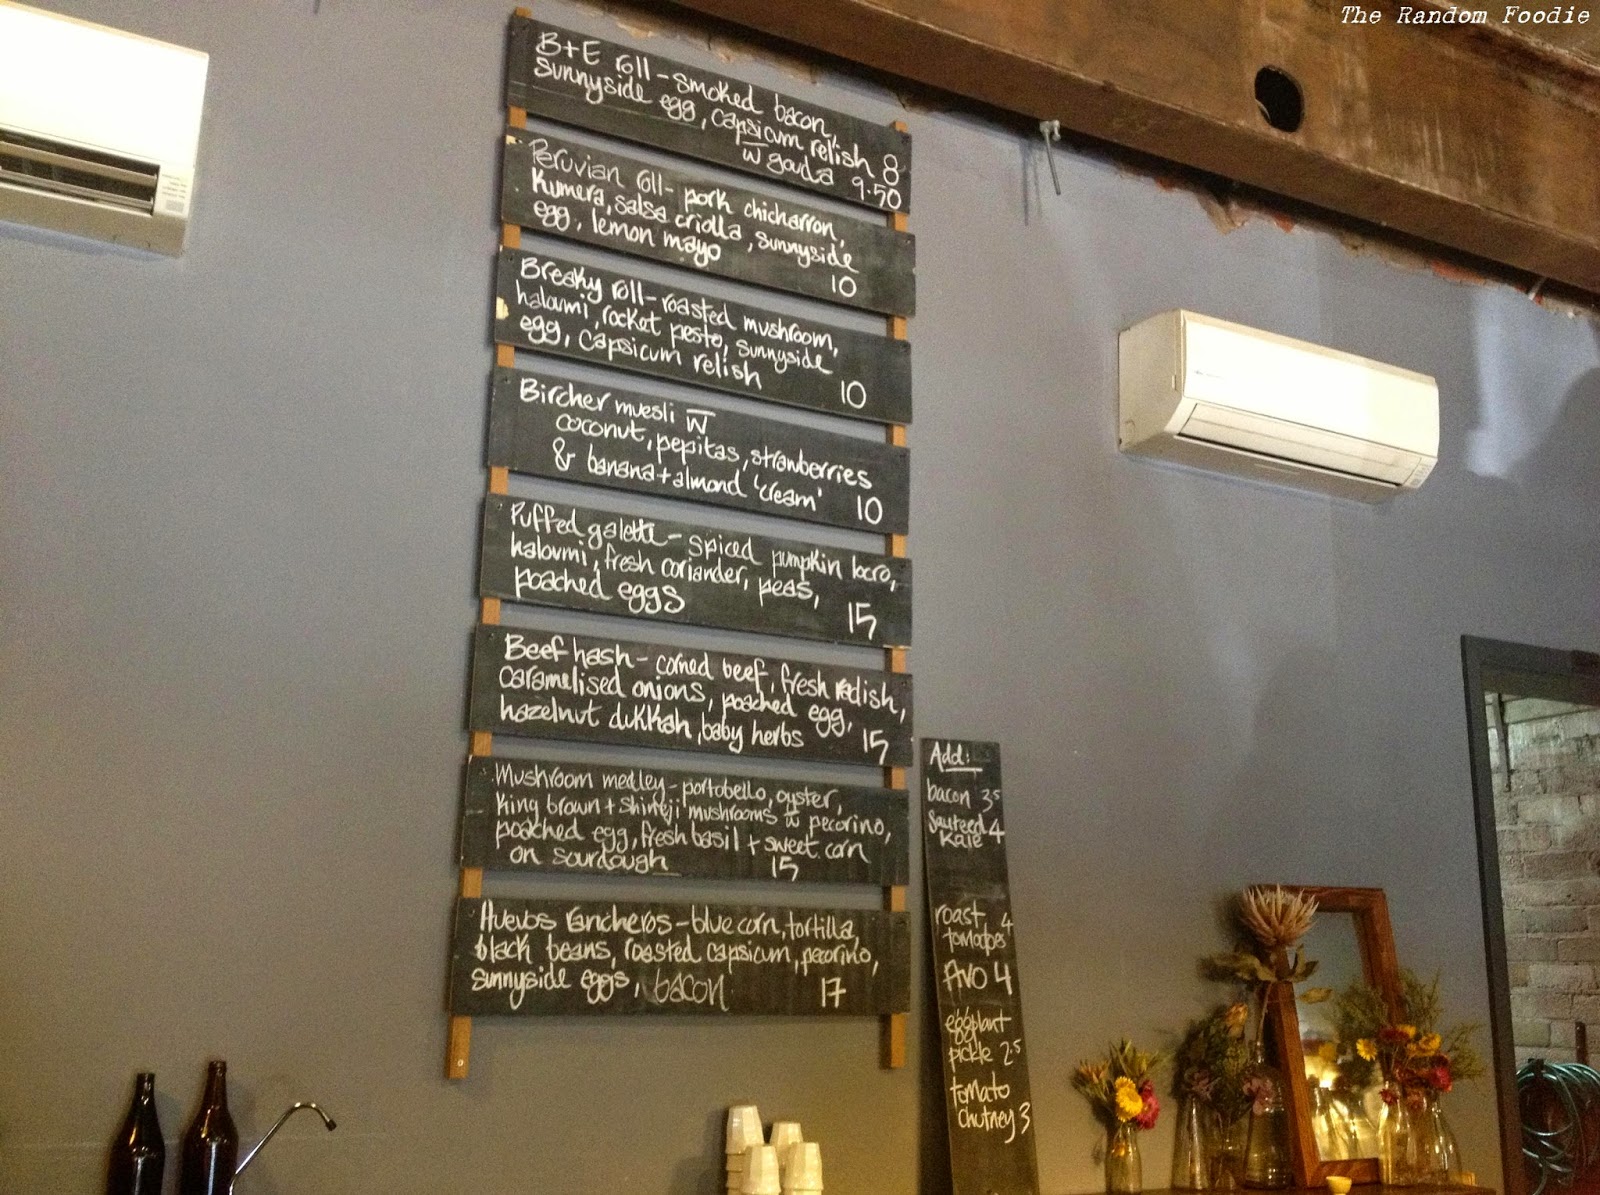 The Random Foodie
B+E roll - smoked bacon,
sunnyside egg, capsicum relish 8
w gouda 9.50
Peruvian roll - pork chicharron,
kumera, salsa criolla, sunnyside
egg, lemon mayo
10
Breaky roll - roasted mushroom,
haloumi, rocket pesto, sunnyside
egg, capsicum relish
10
Bircher muesli w
coconut, pepitas, strawberries
& banana + almond 'cream' 10
Puffed galette - spiced pumpkin locro,
haloumi, fresh coriander, peas,
poached eggs 15
Beef hash - corned beef, fresh radish,
caramelised onions, poached egg,
hazelnut dukkah, baby herbs 15
Mushroom medley - portobello, oyster,
king brown + shimeji mushrooms w pecorino,
poached egg, fresh basil + sweet corn
on sourdough 15
Huevos rancheros - blue corn, tortilla,
black beans, roasted capsicum, pecorino,
sunnyside eggs, bacon 17
Add:
bacon 3.5
sauteed 4
kale
roast 4
tomatoes
Avo 4
eggplant
pickle 2.5
tomato
chutney 3